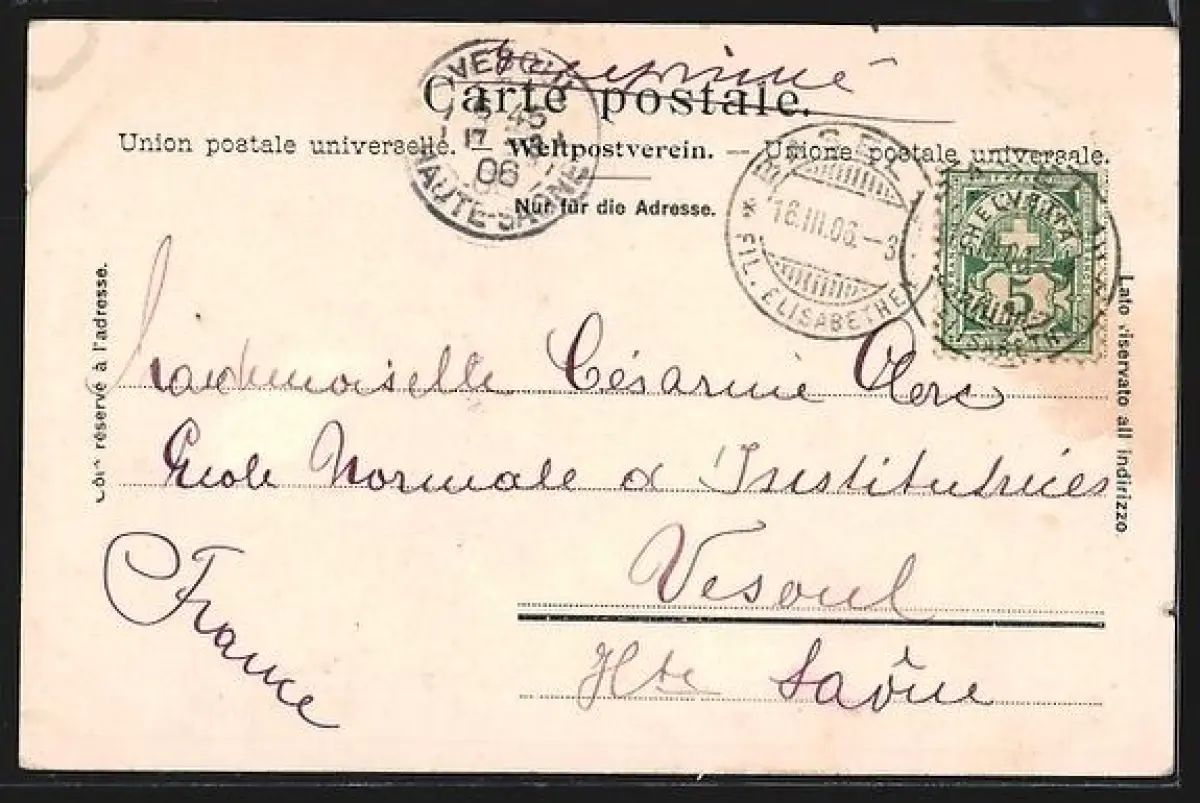 Imprimé
Carte postale.
Union postale universelle. — Weltpostverein. — Unione postale universale.
Nur für die Adresse.
VESOUL
45
17
06
HAUTE-SAONE
BASEL
16.III.06.-3
FIL. ELISABETHEN
HELVETIA
5
Côté réservé à l'adresse.
Lato riservato all indirizzo.
Mademoiselle Césarine Clerc
Ecole Normale d'Institutrices
Vesoul
Hte Saône
France